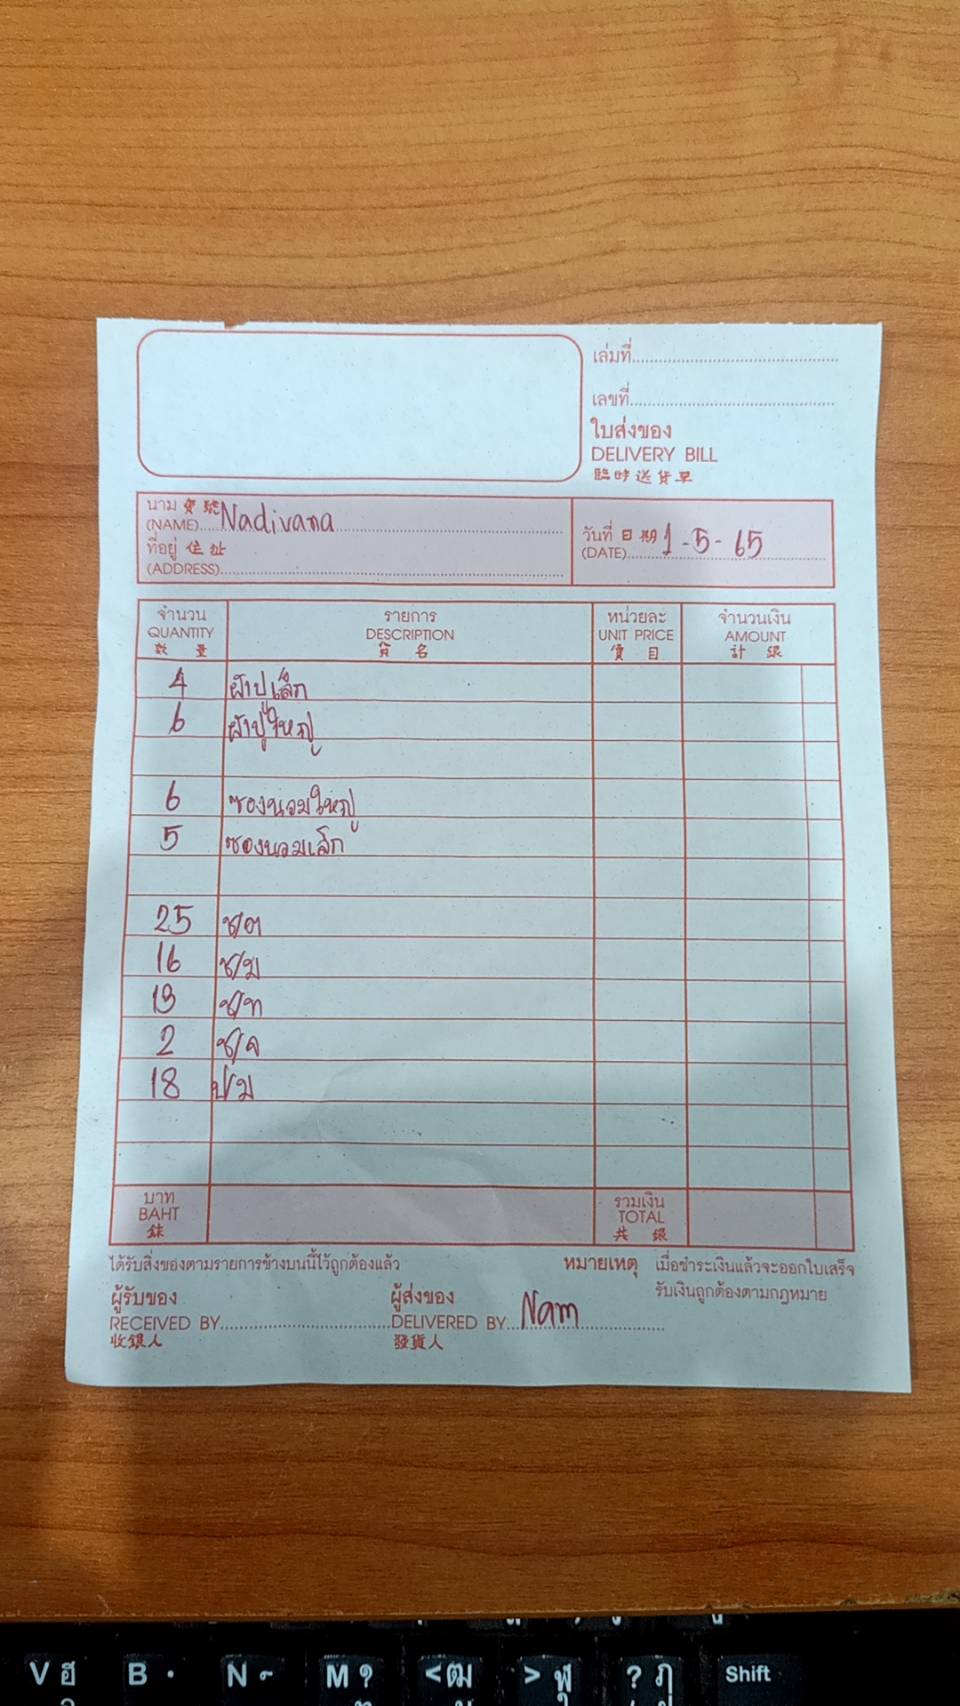 เล่มที่
เลขที่
ใบส่งของ
DELIVERY BILL
臨時送货單
นาม 寶號 Nadivana
(NAME)
ที่อยู่ 住址
(ADDRESS)
วันที่ 日期 1-5-65
(DATE)
จำนวน รายการ หน่วยละ จำนวนเงิน
QUANTITY DESCRIPTION UNIT PRICE AMOUNT
數 量 貨 名 價 目 計 銀
4 ผ้าปูเล็ก
6 ผ้าปูใหญ่
6 ซองนวมใหญ่
5 ซองนวมเล็ก
25 ช/ต
16 ช/ม
19 ช/ท
2 ช/จ
18 ป/ม
บาท รวมเงิน
BAHT TOTAL
銖 共 銀
ได้รับสิ่งของตามรายการข้างบนนี้ไว้ถูกต้องแล้ว หมายเหตุ เมื่อชำระเงินแล้วจะออกใบเสร็จ
รับเงินถูกต้องตามกฎหมาย
ผู้รับของ ผู้ส่งของ
RECEIVED BY DELIVERED BY Nam
收銀人 發貨人
V ฮ B N M ? <ฒ > ฬ ? ฦ Shift